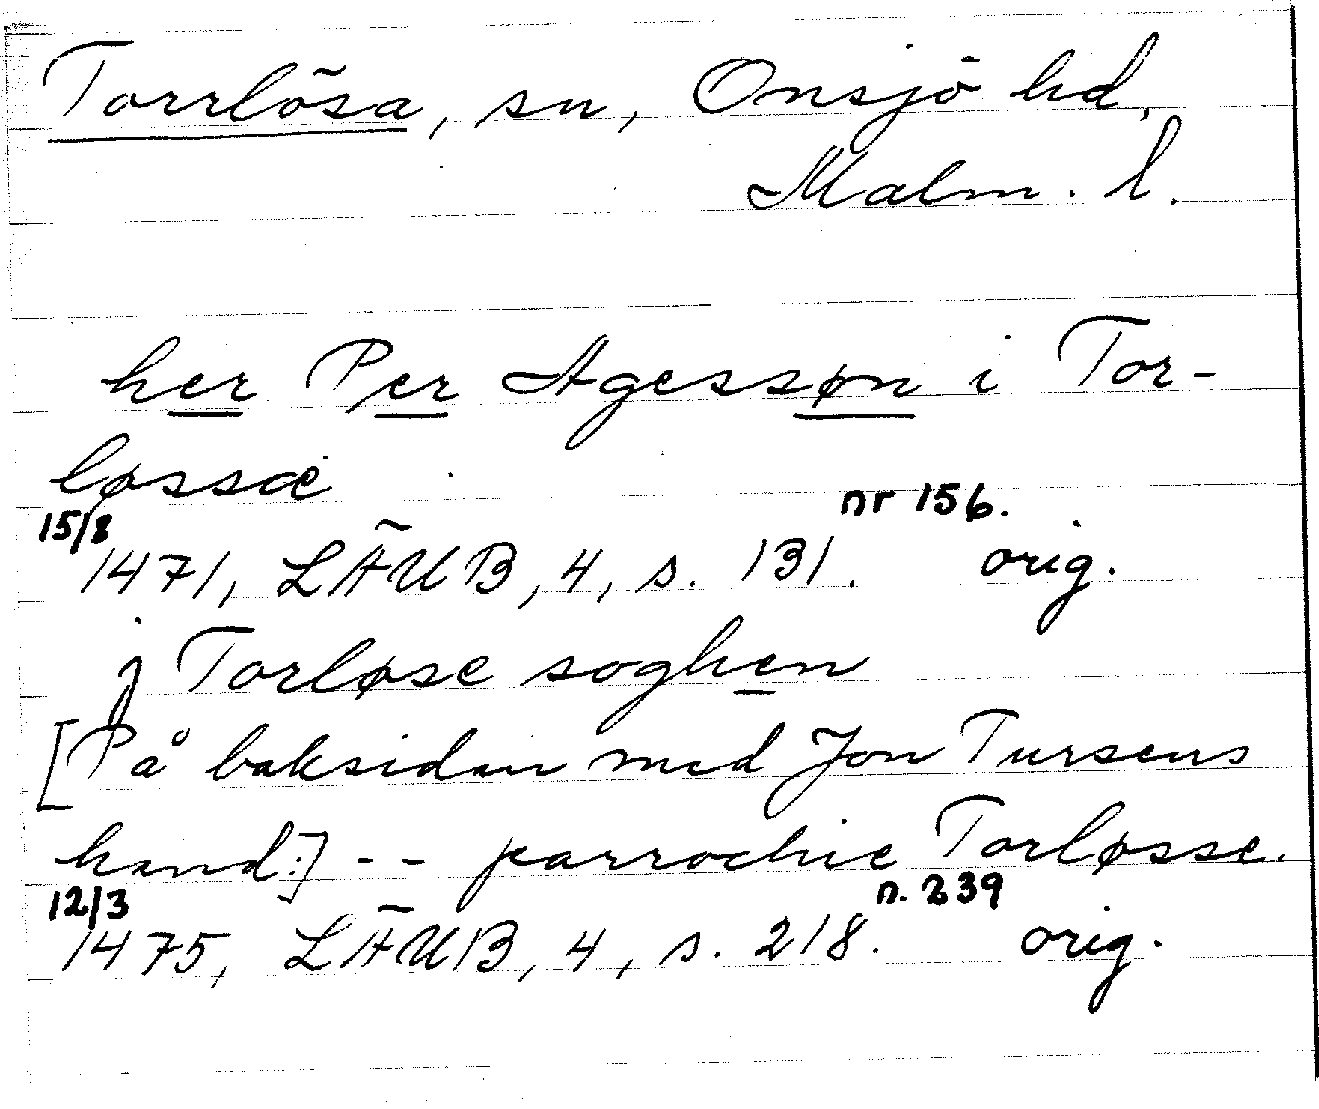 Torrlösa, sn, Onsjö hd,
Malm. l.
her Per Agessøn i Tor-
løssæ
15/8 nr 156.
1471, LÄUB, 4, s. 131. orig.
j Torløse soghen
[På baksidan med Jon Tursens
hand:] -- parrochie Torløsse.
12/3 n. 239
1475, LÄUB, 4, s. 218. orig.